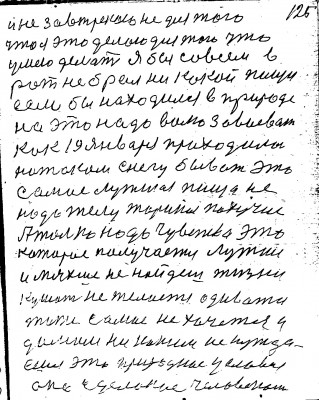 125
и не завтрекоть не для того
что я это делаю для того что
умею делат Я был совсем в
рот не брал ни какой пищи
если бы находился в природе
на это надо волю Завоеват
как 19 Января приходилос
по такому снегу быват это
самое лутшая пища не
надо желу
А только надо чувства это
которые получаетца лутшии
и мяхше не найдеш жизни
Кушат не желается одиватца
тоже самое не хочется а
домом ни каким не нужда-
ешся это природное условия
она сделаное человеком